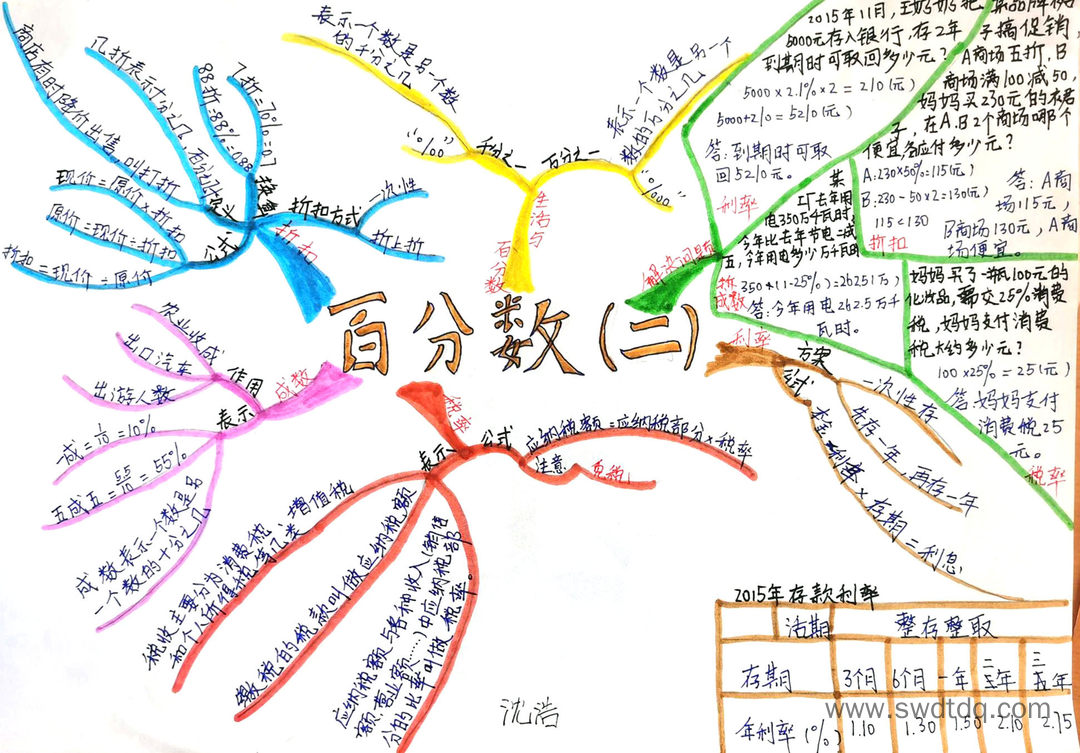 百分数(二)
折扣
商店有时降价出售,叫打折
几折表示十分之几,百分之几十
换算
88折=88%=0.88
7折=70%=0.7
折扣方式
一次性
折上折
公式
现价=原价×折扣
原价=现价÷折扣
折扣=现价÷原价
生活与
百分数
千分之一
表示一个数是另一个数
的千分之几
"‰"
百分之一
表示一个数是另一个
数的百分之几
解决问题
利率
2015年11月,王奶奶把
5000元存入银行,存2年
到期时可取回多少元?
5000×2.1%×2=210(元)
5000+210=5210(元)
答:到期时可取
回5210元。
子搞促销,
A商场五折,B
商场满100减50,
妈妈买230元的衣裙
子,在A.B2个商场哪个
便宜各应付多少元?
A:230×50%=115(元)
B:230-50×2=130(元)
115<130
折扣
答:A商
场115元,
B商场130元,A商
场便宜。
某
工厂去年用
电350万千瓦时,
今年比去年节电二成
五,今年用电多少万千瓦时
350×(1-25%)=262.5(万)
答:今年用电262.5万千
瓦时。
成数
妈妈买了一瓶100元的
化妆品,需交25%消费
税,妈妈支付消费
税大约多少元?
100×25%=25(元)
答:妈妈支付
消费税25
元。
税率
利率
方案
一次性存
先存一年,再存一年
公式
本金×利率×存期=利息
税率
公式
应纳税额=应纳税部分×税率
注意
免税
表示
税收主要分为消费税、增值税
和个人所得税等几类
缴税的税款叫做应纳税额
应纳税额与各种收入(销售
额、营业额……)中应纳税部
分的比率叫做税率。
成数
作用
农业收成
出口汽车
出游人数
表示
一成=1/10=10%
五成五=55/10=55%
成数表示一个数是另
一个数的十分之几
沈浩
2015年存款利率
活期 整存整取
存期 3个月 6个月 一年 二年 三年 五年
年利率(%) 1.10 1.30 1.50 2.10 2.75
www.swdtdq.com